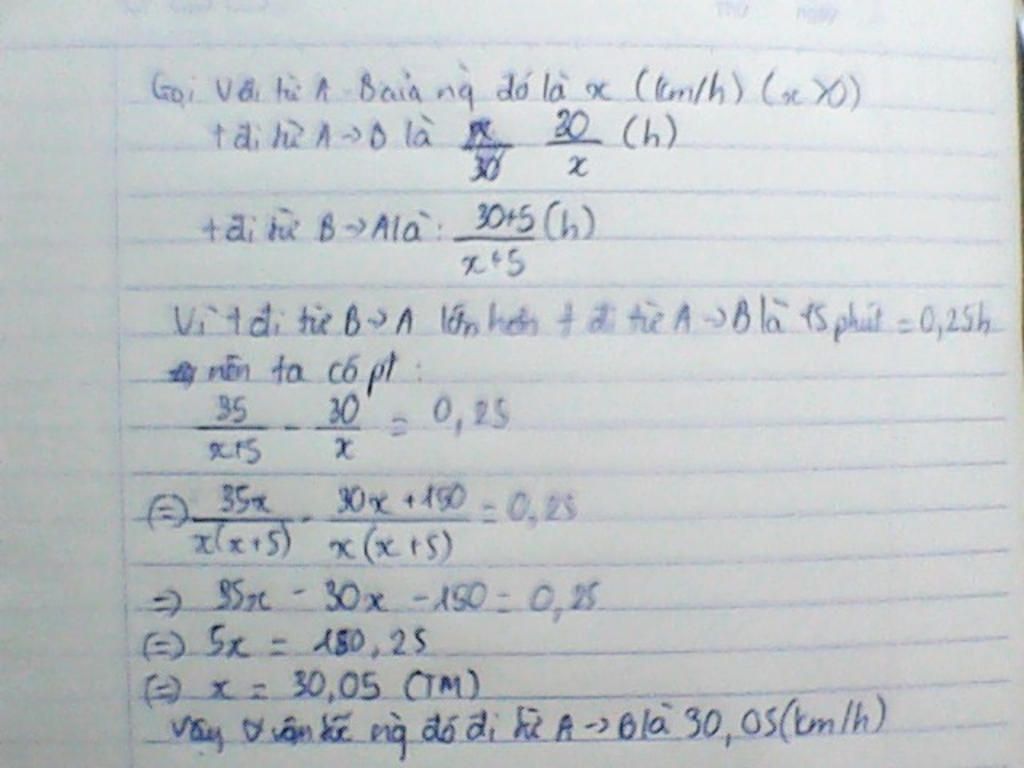 Gọi V đi từ A - B của ng đó là x (km/h) (x>0)
t đi từ A → B là x/30 30/x (h)
t đi từ B → A là: 30+5/x+5 (h)
Vì t đi từ B → A lớn hơn t đi từ A → B là 15 phút = 0,25h
nên ta có pt :
35/x+5 - 30/x = 0,25
(=) 35x/x(x+5) - 30x+150/x(x+5) = 0,25
=) 35x - 30x - 150 = 0,25
(=) 5x = 150,25
(=) x = 30,05 (TM)
Vậy vận tốc ng đó đi từ A → B là 30,05(km/h)